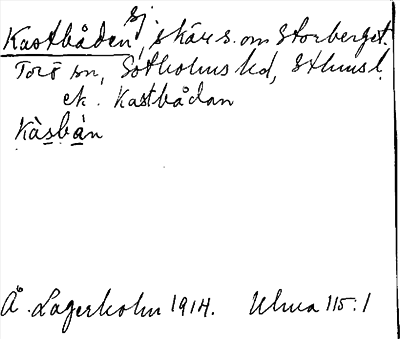 Sj
Kastbåden, skär s. om Storberget.
Torö sn, Sotholms hd, Sthms l.
ek. Kastbådan
Kàsbàn
Å. Lagerholm 1914. Uhua 115:1